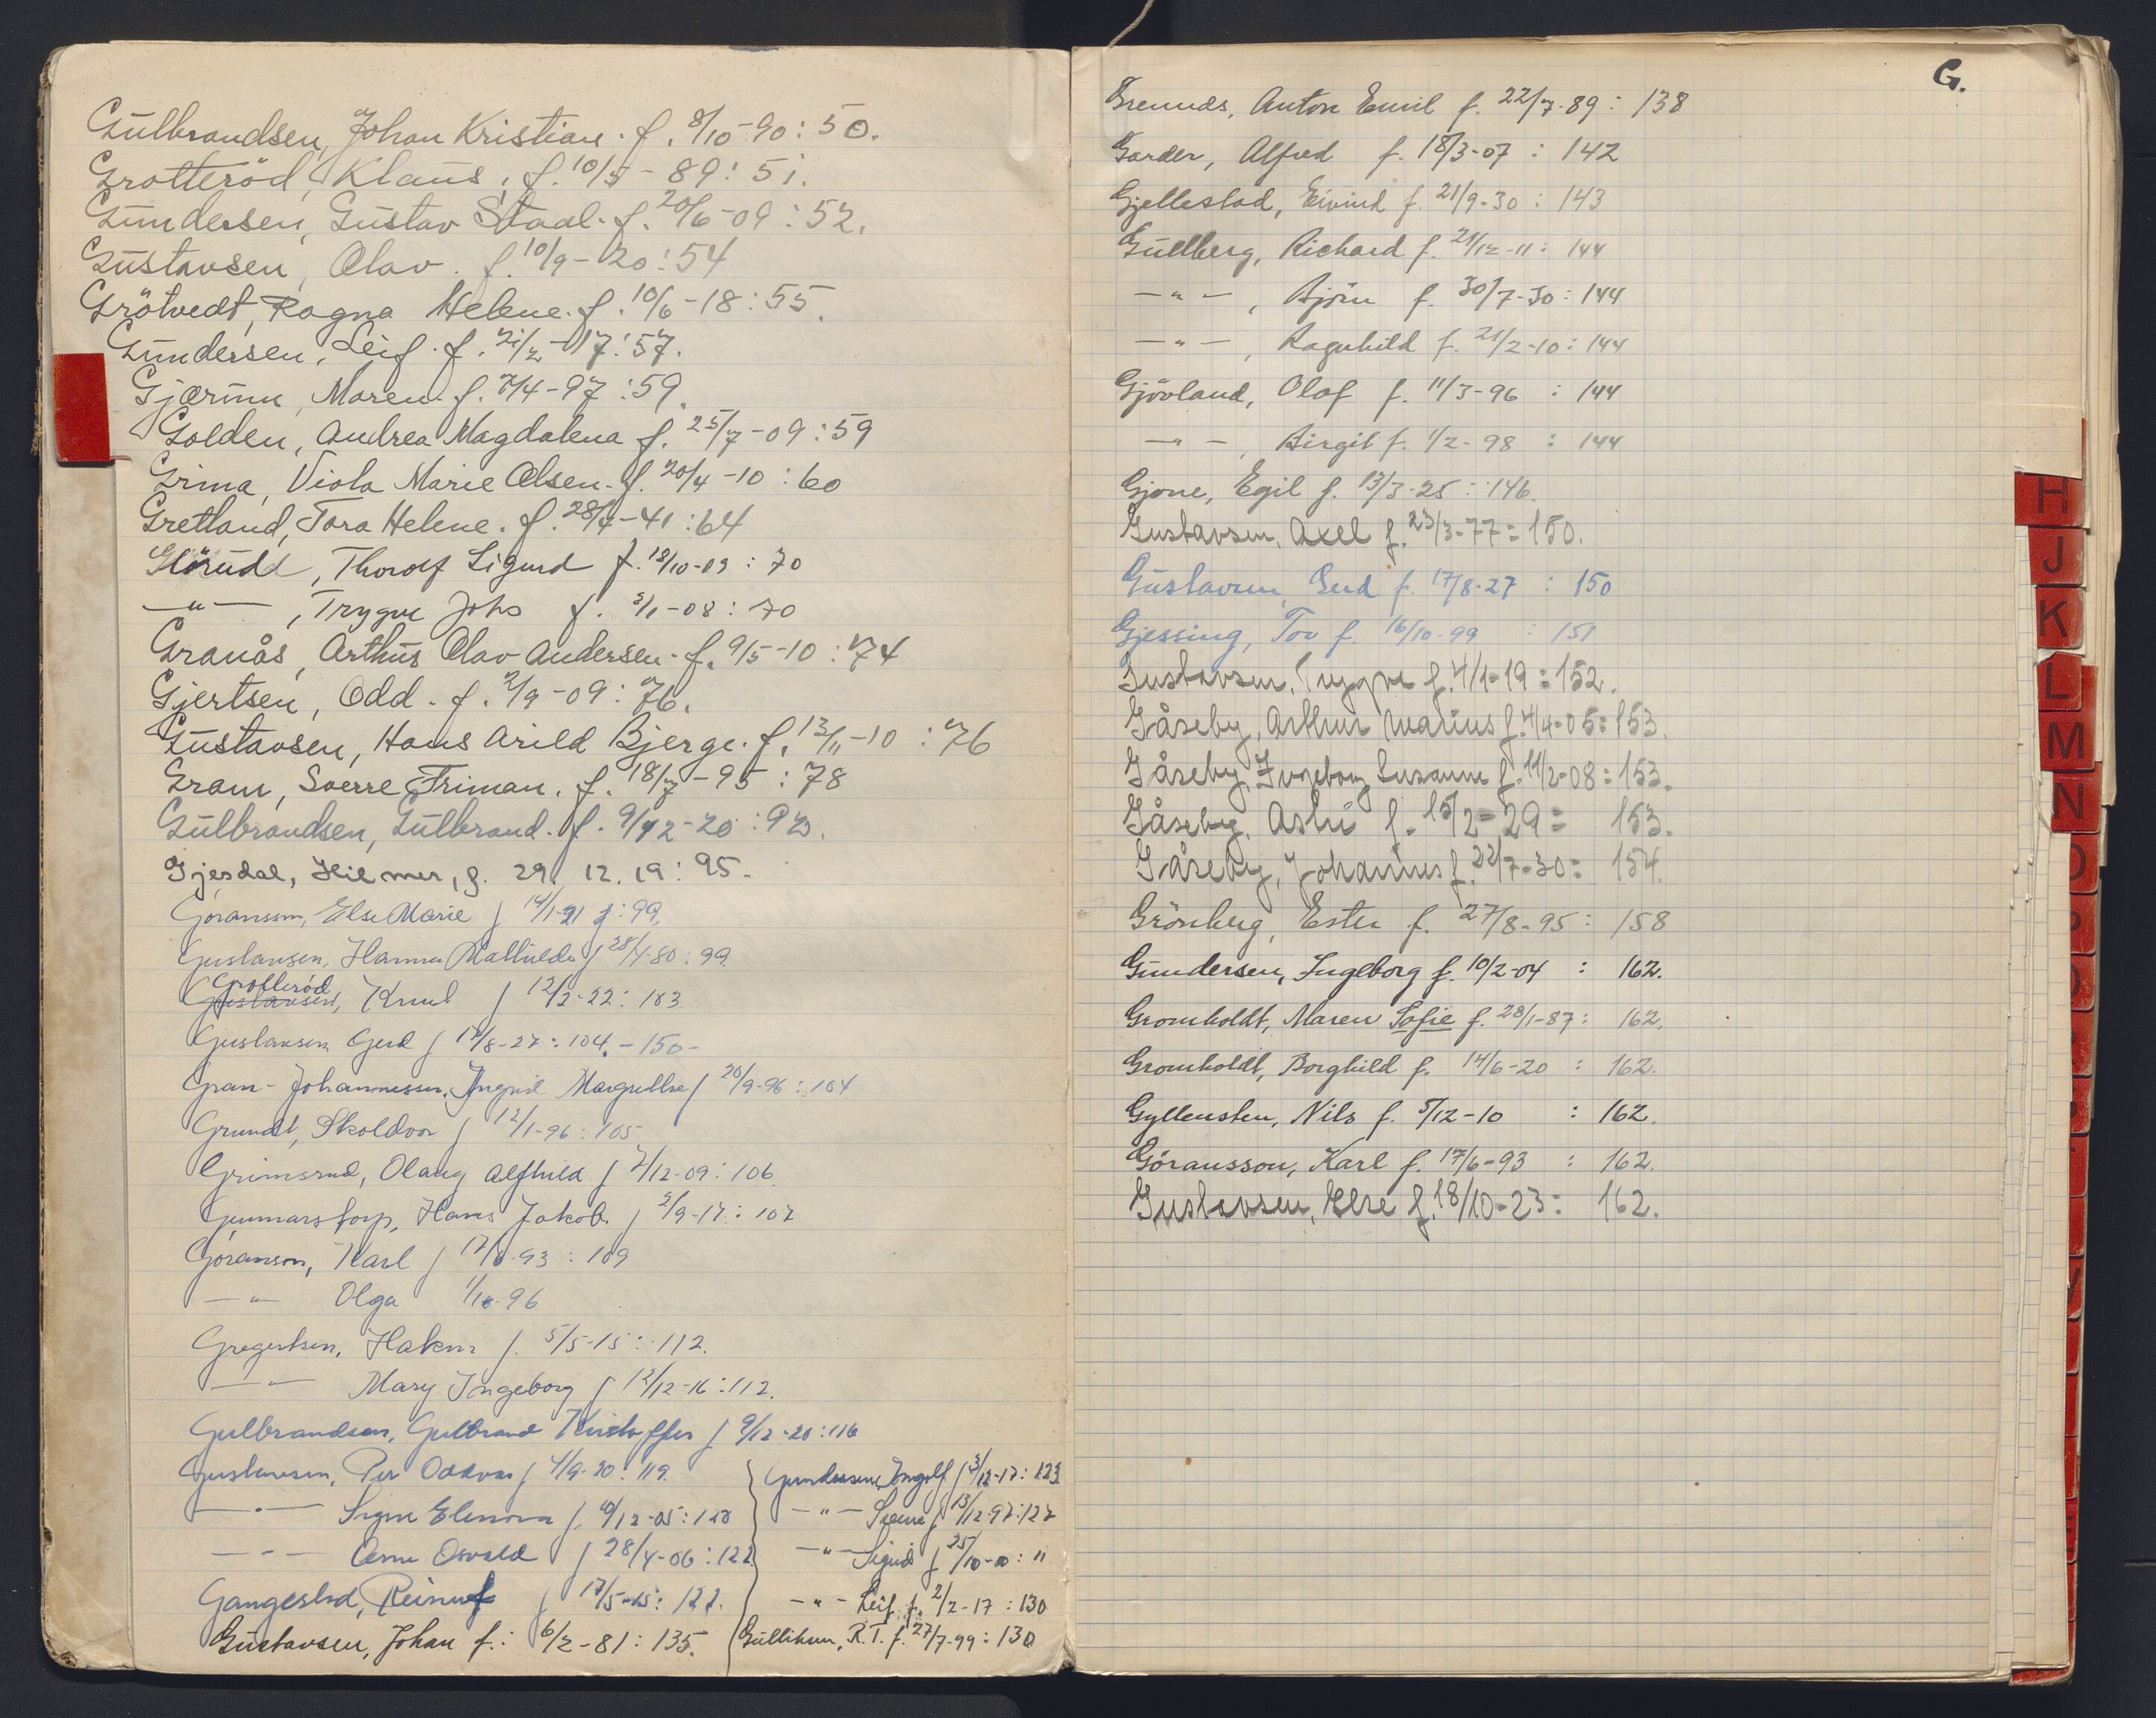 Gulbrandsen, Johan Kristian. f. 8/10-90: 50.
Grotteröd, Klaus, f. 10/5-89: 51.
Gundersen, Gustav Staal. f. 20/6-09: 52.
Gustavsen, Olav. f. 10/9-20: 54
Grötvedt, Ragna Helene. f. 10/6-18: 55.
Gundersen, Leif. f. 21/2-17: 57.
Gjærum, Maren. f. 7/4-97: 59.
Golden, Andrea Magdalena f. 25/7-09: 59
Grima, Viola Marie Olsen. f. 20/4-10: 60
Gretland, Tora Helene. f. 28/7-41: 64
Glorudd, Thorolf Sigurd f. 18/10-09: 70
—"— , Trygve Johs f. 3/1-08: 70
Granås, Arthus Olav Andersen. f. 9/5-10: 74
Gjertsen, Odd. f. 2/9-09: 76.
Gustavsen, Hans Arild Bjerge. f. 13/11-10: 76
Gram, Sverre Friman. f. 18/7-95: 78
Gulbrandsen, Gulbrand. f. 9/12-20: 93.
Gjesdal, Hilmer, f. 29. 12. 19: 95.
Göransson, Else Marie f 14/1-21: 99.
Gustavsen, Hanna Mathilde f 28/4-80: 99.
Grotteröd
Gustavsen, Knut f 12/2-22: 103
Gustavsen Gerd f 17/8-27: 104. -150-
Gran-Johannessen, Ingrid Margrethe f 20/9-96: 104
Grundt, Skoldvor f 12/1-96: 105
Grimsrud, Olaug Alfhild f 2/12-09: 106
Gunnarstorp, Hans Jakob. f 2/9-17: 107
Göranson, Karl f 17/6-93: 109
—"— Olga 1/10-96
Gregertsen, Hakon f. 5/5-15: 112.
—"— Mary Ingeborg f 12/12-16: 112.
Gulbrandsen, Gulbrand Kristoffer f 9/12-20: 116
Gustavsen, Per Oddvar f 4/9-20: 119.
—"— Signe Elenora f. 10/12-05: 120
—"— Arne Osvald f 28/4-06: 122
Gangestad, Reinulf f 17/5-15: 122.
Gustavsen, Johan f.: 6/2-81: 135.
Gundersen, Ingolf f 3/12-17: 123
—"— f 13/12-97: 127
—"— Sigrid f 25/10-00: "
—"— Leif f. 2/2-17: 130
Gulliksen, R.T. f. 27/7-99: 130
G.
Anton Emil f. 22/7-89: 138
Garder, Alfred f. 18/3-07: 142
Gjellestad, Eivind f. 21/9-30: 143
Gullberg, Richard f. 21/12-11: 144
—"— , Björn f. 30/7-30: 144
—"— , Ragnhild f. 21/2-10: 144
Gjövland, Olaf f. 11/3-96: 144
—"— , Birgit f. 1/2-98: 144
Gjone, Egil f. 13/3-25: 146.
Gustavsen, Axel f. 23/3-77: 150.
Gustavsen, Gerd f. 17/8-27: 150
Gjessing, Tov f. 16/10-99: 151
Gustavsen, Trygve f. 4/1-19: 152.
Gåseby, Arthur Marius f. 4/4-05: 153.
Gåseby, Ingeborg Susanne f. 11/2-08: 153.
Gåseby, Astri f. 15/2-29: 153.
Gåseby, Johannes f. 22/7-30: 154.
Grönberg, Ester f. 27/8-95: 158
Gundersen, Ingeborg f. 10/2-04: 162.
Gromholdt, Maren Sofie f. 28/1-87: 162.
Gromholdt, Borghild f. 14/6-20: 162.
Gyllensten, Nils f. 5/12-10: 162.
Göransson, Karl f. 17/6-93: 162.
Gustavsen, Else f. 18/10-23: 162.
H
J
K
L
M
N